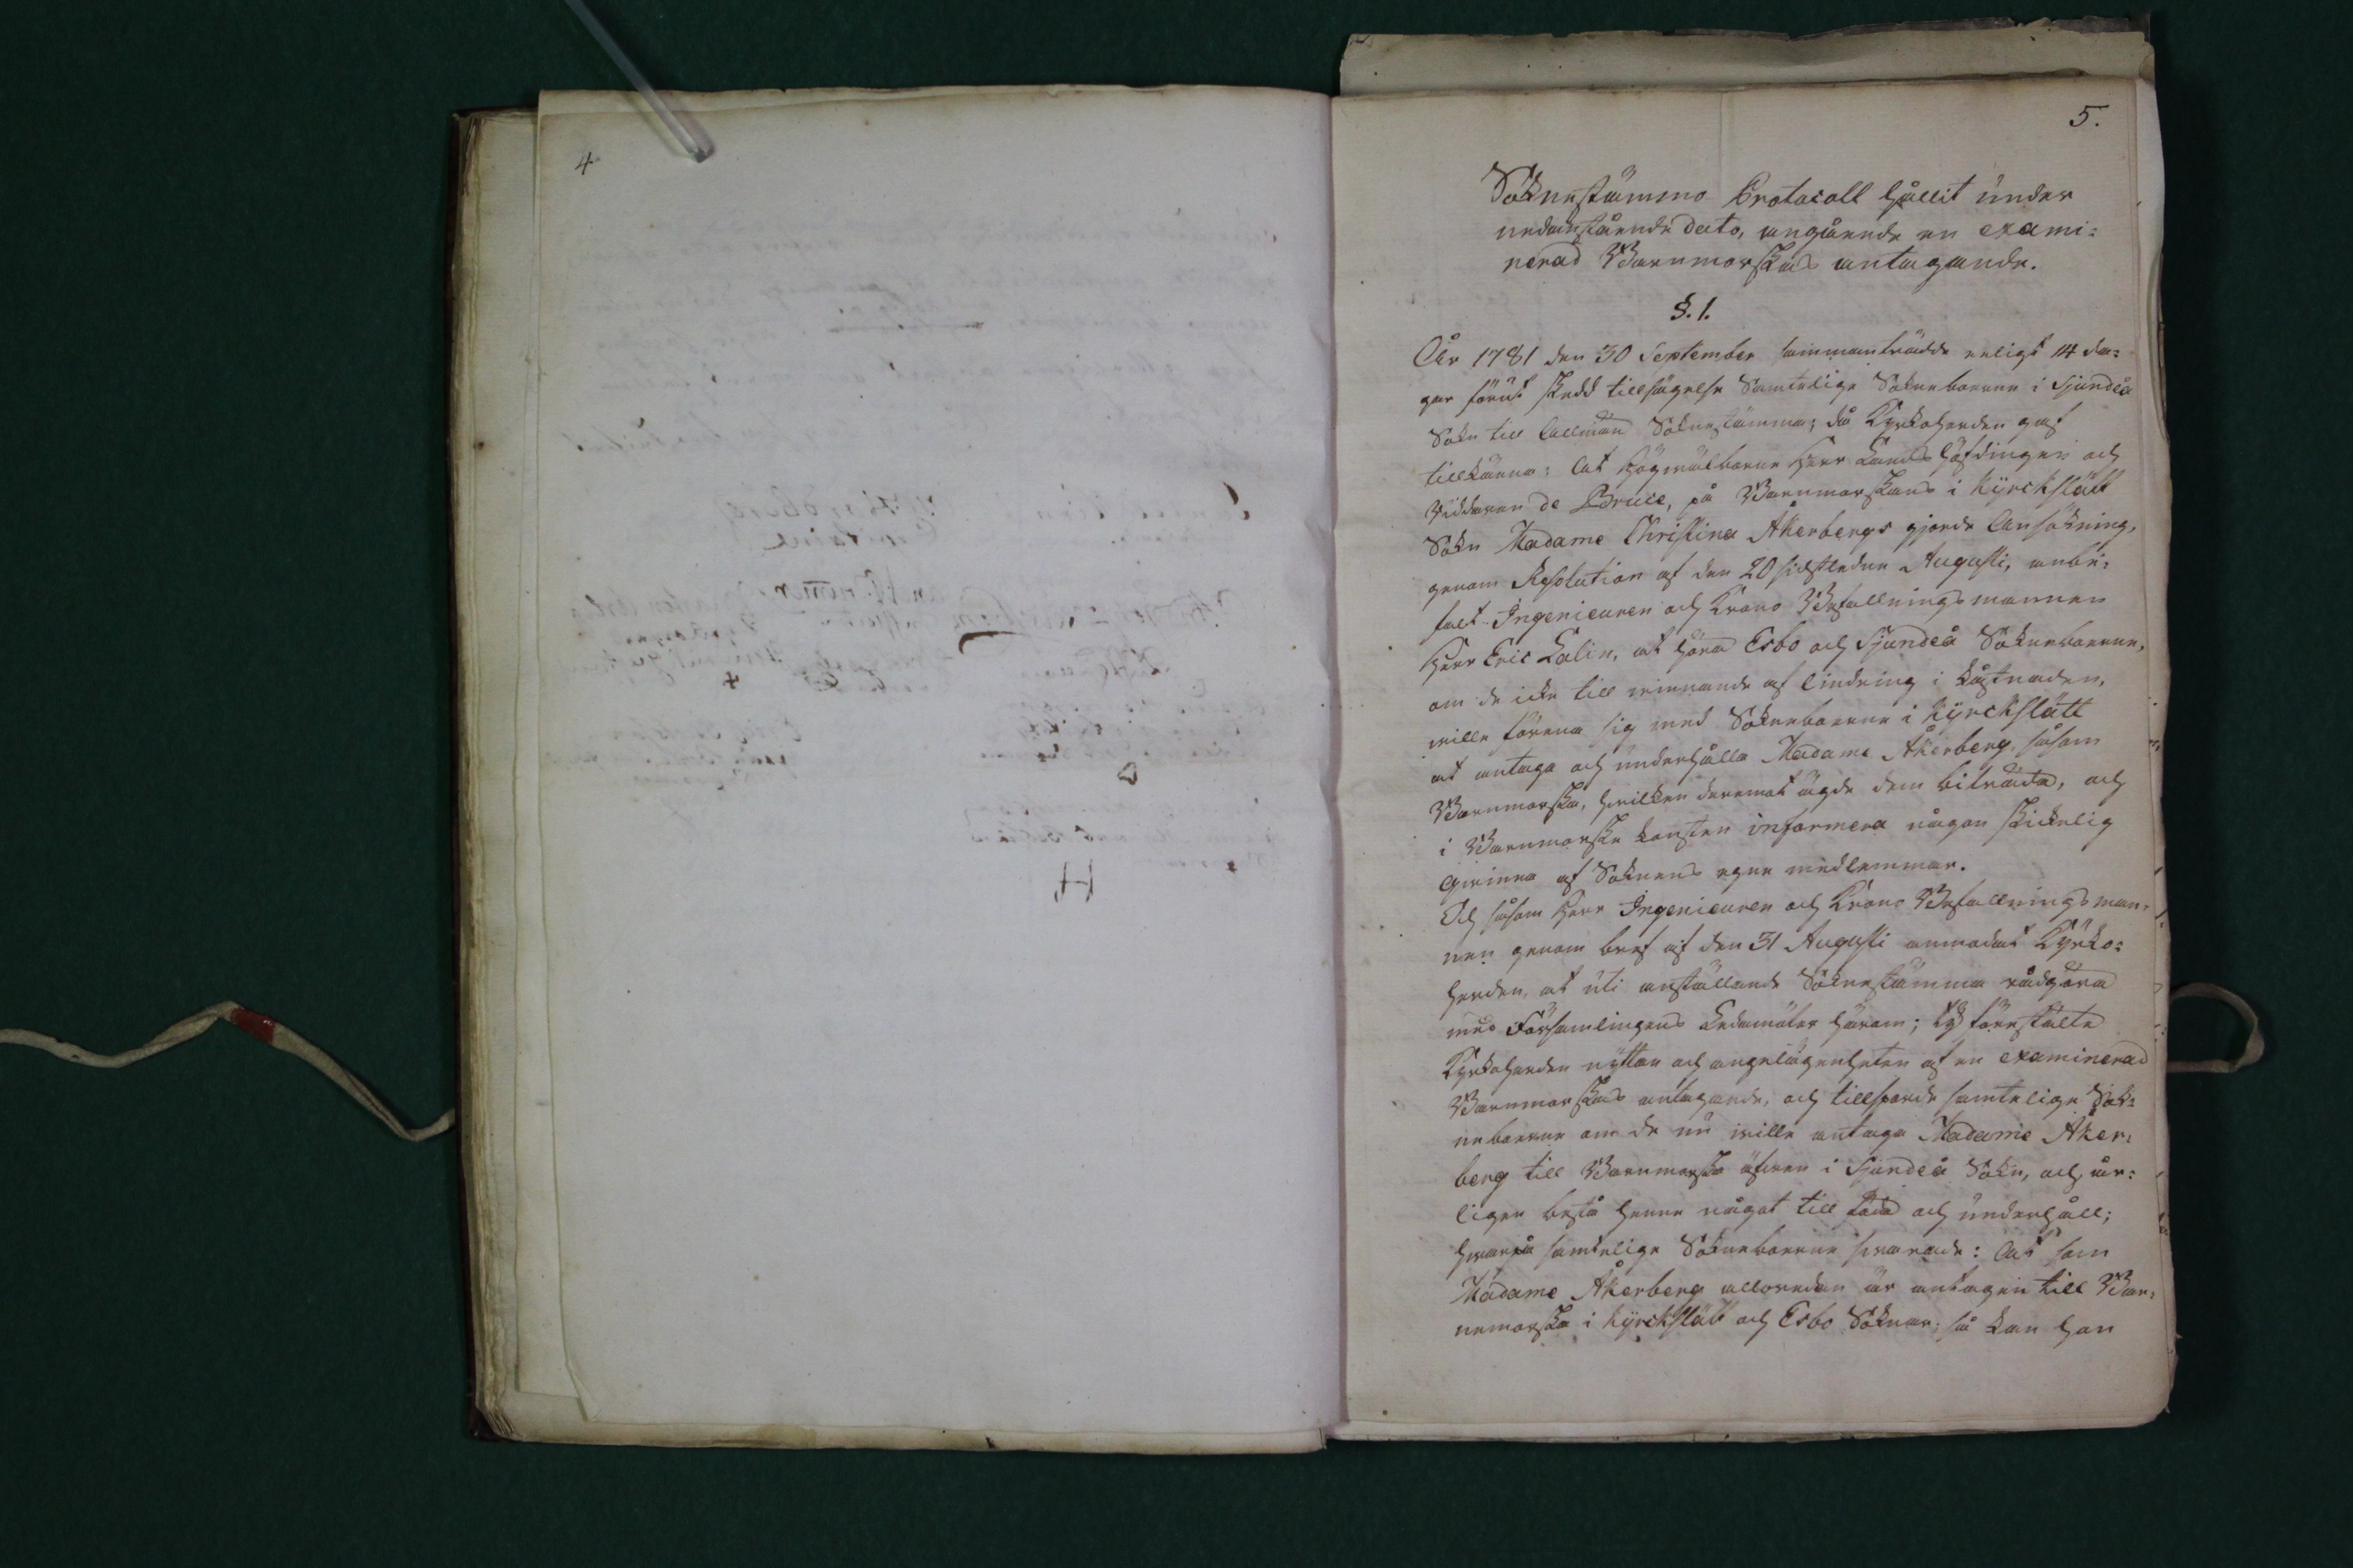 4
5.
Soknestämmo Protocoll hållit under
nedanstående dato, angående en exami=
nerad Barnmorskas antagande.
§. 1.
År 1781 den 30 September sammanträdde enligt 14 da=
gar förut skedd tillsägelse Samtelige Sokneboerne i Sjundeå
Sokn till Allmän Soknestämma; då Kyrkoherden gaf
tillkänna: At Högwälborne Herr Landshöfdingen och
Riddaren de Bruce, på Barnmorskans i Kyrckslätt
Sokn Madame Christina Åkerbergs gjorde Ansökning,
genom Resolution af den 20 sidstledne Augusti, anbe=
falt Ingenieuren och Krono Befallningsmannen
Herr Eric Lalin, at höra Esbo och Sjundeå Sokneboerne,
om de icke till winnande af lindring i kåstnaden,
wille förena sig med Sokneboerne i Kyrckslätt
at antaga och underhålla Madame Åkerberg, såsom
Barnmorska, hwilken deremot ägde dem biträda, och
i Barnmorske konsten informera någon skickelig
Qwinna af Soknens egne medlemmar.
Och såsom Herr Ingenieuren och Krono Befallningsman=
nen genom bref af den 31 Augusti anmodat Kyrko=
herden, at uti anställande Soknestämma rådgöra
med Församlingens Ledamöter härom; Ty förestälte
Kyrkoherden nyttan och angelägenheten af en examinerad
Barnmorskas antagande, och tillsporde samtelige Sok=
neboerne om de nu wille antaga Madame Åker=
berg till Barnmorska äfwen i Sjundeå Sokn, och år=
ligen bestå henne något till föda och underhåll;
hwarpå samtelige Sokneboerne swarade: At som
Madame Åkerberg alloredan är antagen till Bar=
nemorska i Kyrckslätt och Esbo Soknar, så kan hon